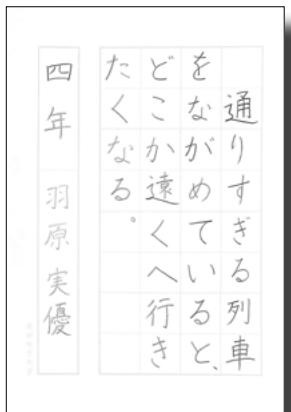 通りすぎる列車
をながめていると、
どこか遠くへ行き
たくなる。
四年 羽原実優